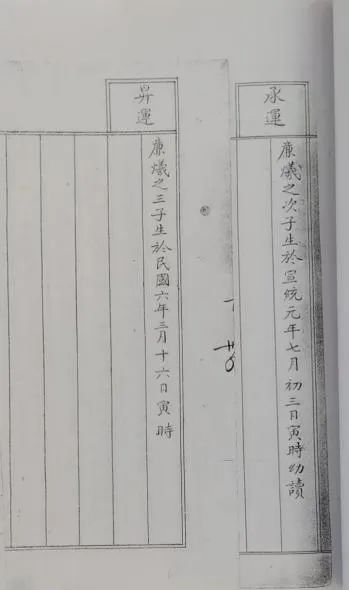 承運
廉爔之次子生於宣統元年七月初三日寅時幼讀
昇運
廉爔之三子生於民國六年三月十六日寅時